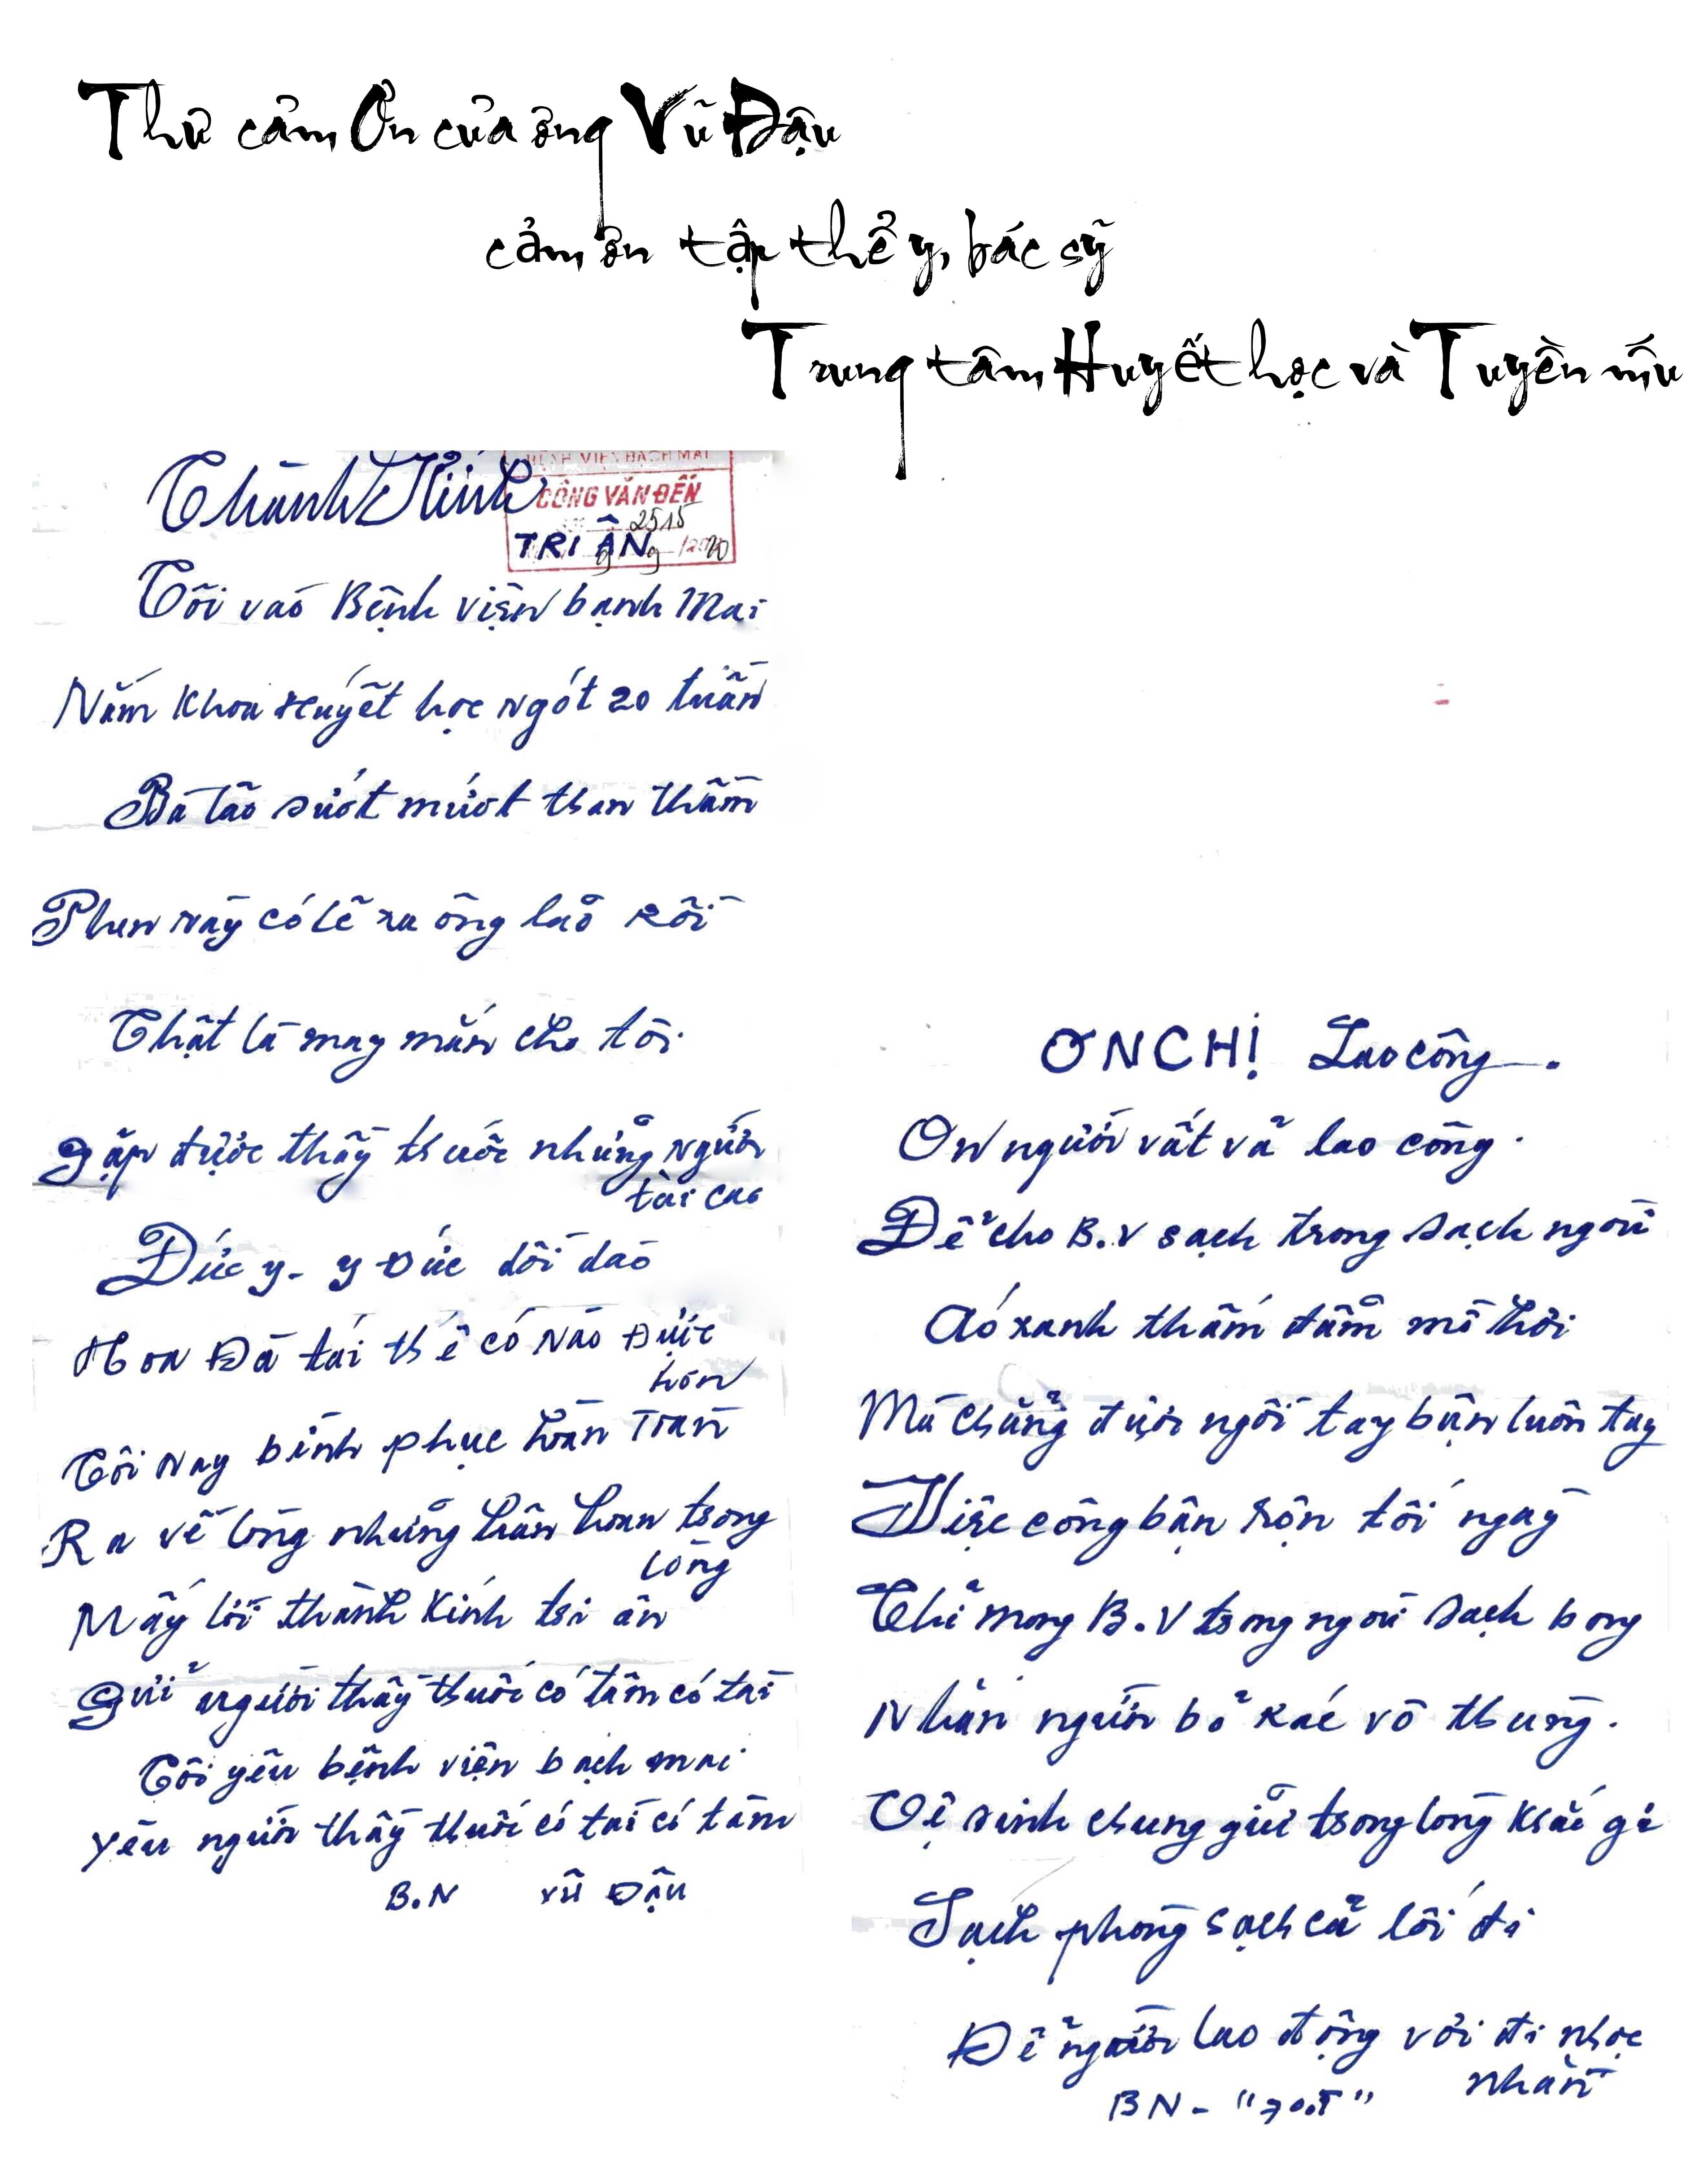 Thư cảm Ơn của ông Vũ Đậu
cảm ơn tập thể y, bác sỹ
Trung tâm Huyết học và Truyền máu
Thành Kính
BỆNH VIỆN BẠCH MAI
CÔNG VĂN ĐẾN
2515
TRI ÂN
Tôi vào Bệnh viện bạnh Mai
Nằm khoa Huyết học ngót 20 tuần
Bà lão sướt mướt than thầm
Phen này có lẽ xa ông lão rồi
Thật là may mắn cho tôi
Gặp được thầy thuốc những người
tài cao
Đức y - y Đức dồi dào
Hoa Đà tái thế có nào Được
hơn
Tôi nay bình phục hoàn Toàn
Ra về lòng những hân hoan trong
lòng
Mấy lời thành kính tri ân
Gửi người thầy thuốc có tâm có tài
Tôi yêu bệnh viện bạch mai
Yêu người thầy thuốc có tài có tâm
B.N Vũ Đậu
ƠN CHỊ Lao công.
Ơn người vất vả lao công.
Để cho B.V sạch trong sạch ngoài
Áo xanh thấm đẫm mồ hôi
Mà chẳng được ngồi tay bận luôn tay
Việc công bận rộn tối ngày
Chỉ mong B.V trong ngoài sạch bong
Nhắn người bỏ rác vô thùng.
Vệ sinh chung giữ trong lòng khắc ghi
Sạch phòng sạch cả lối đi
Để người lao động vơi đi nhọc
nhằn
BN -